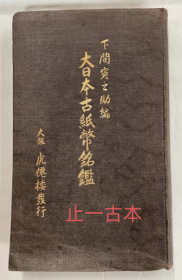 下間寅之助編
大日本古紙幣銘鑑
大阪 虎僊楼發行
止一古本